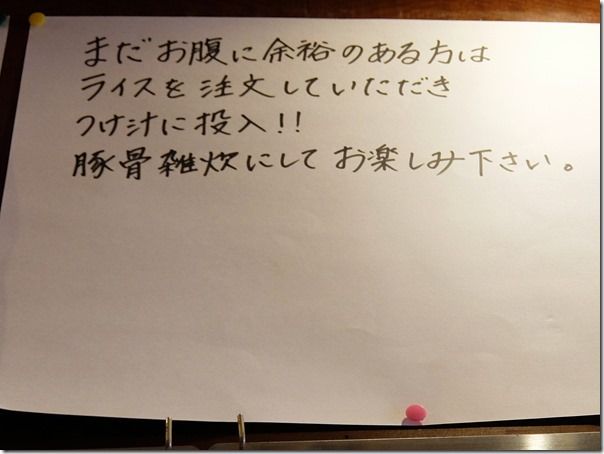 まだお腹に余裕のある方は
ライスを注文していただき
つけ汁に投入!!
豚骨雑炊にしてお楽しみ下さい。